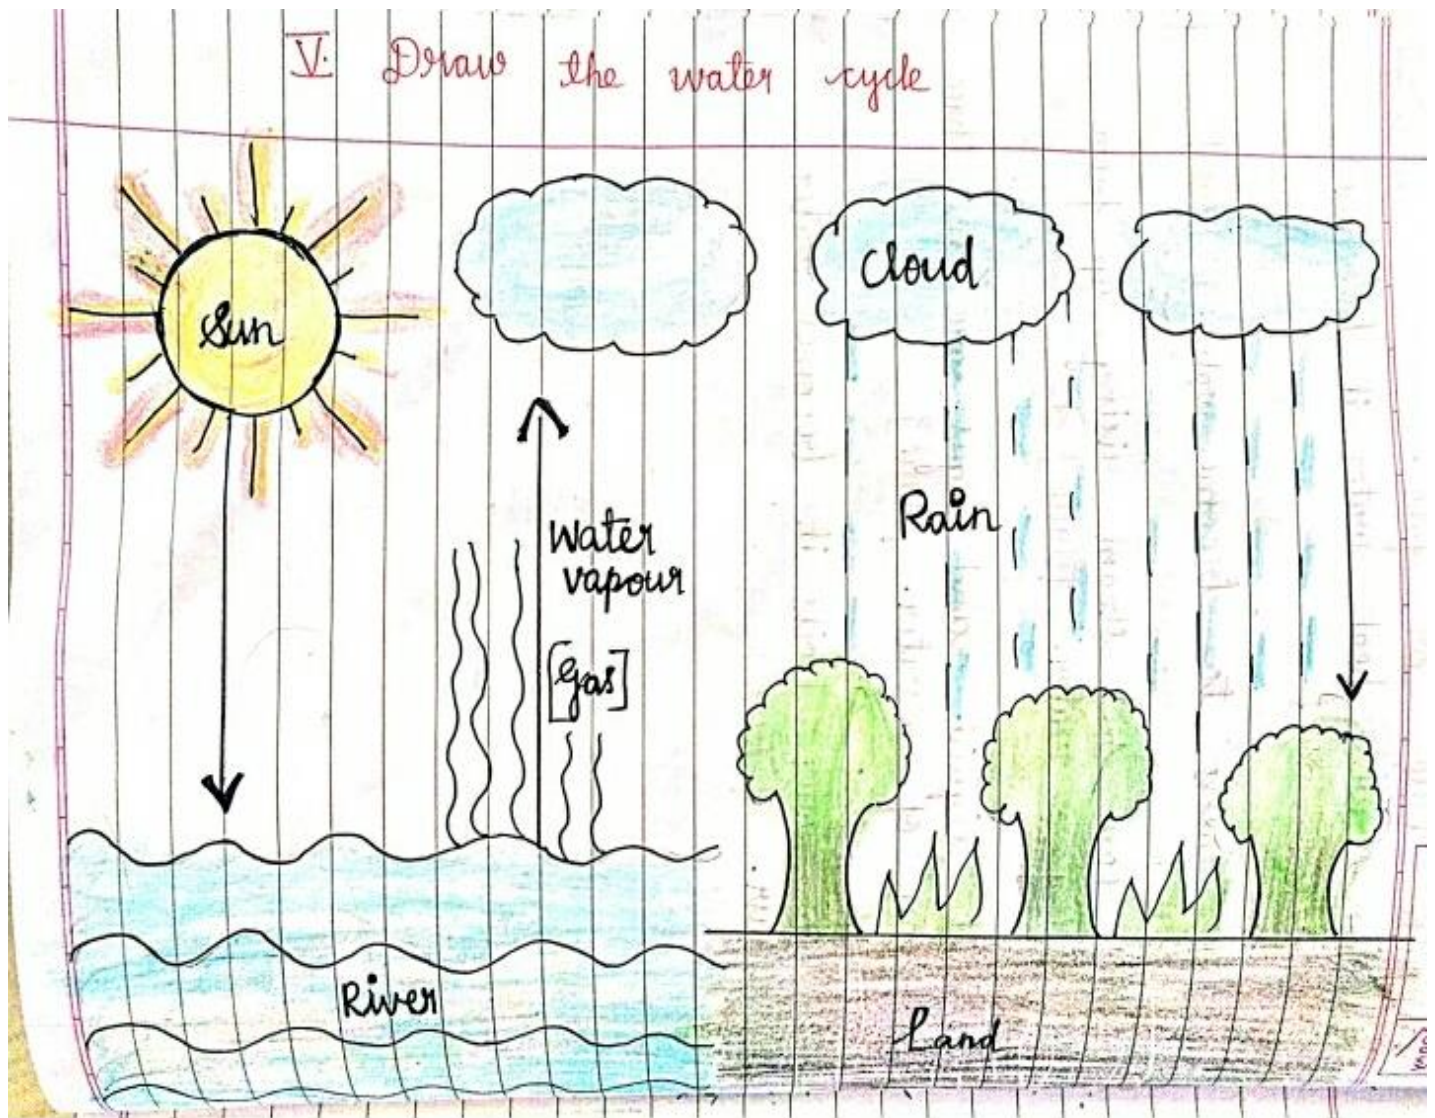 V. Draw the water cycle
Sun
Cloud
Water
vapour
[Gas]
Rain
River
Land